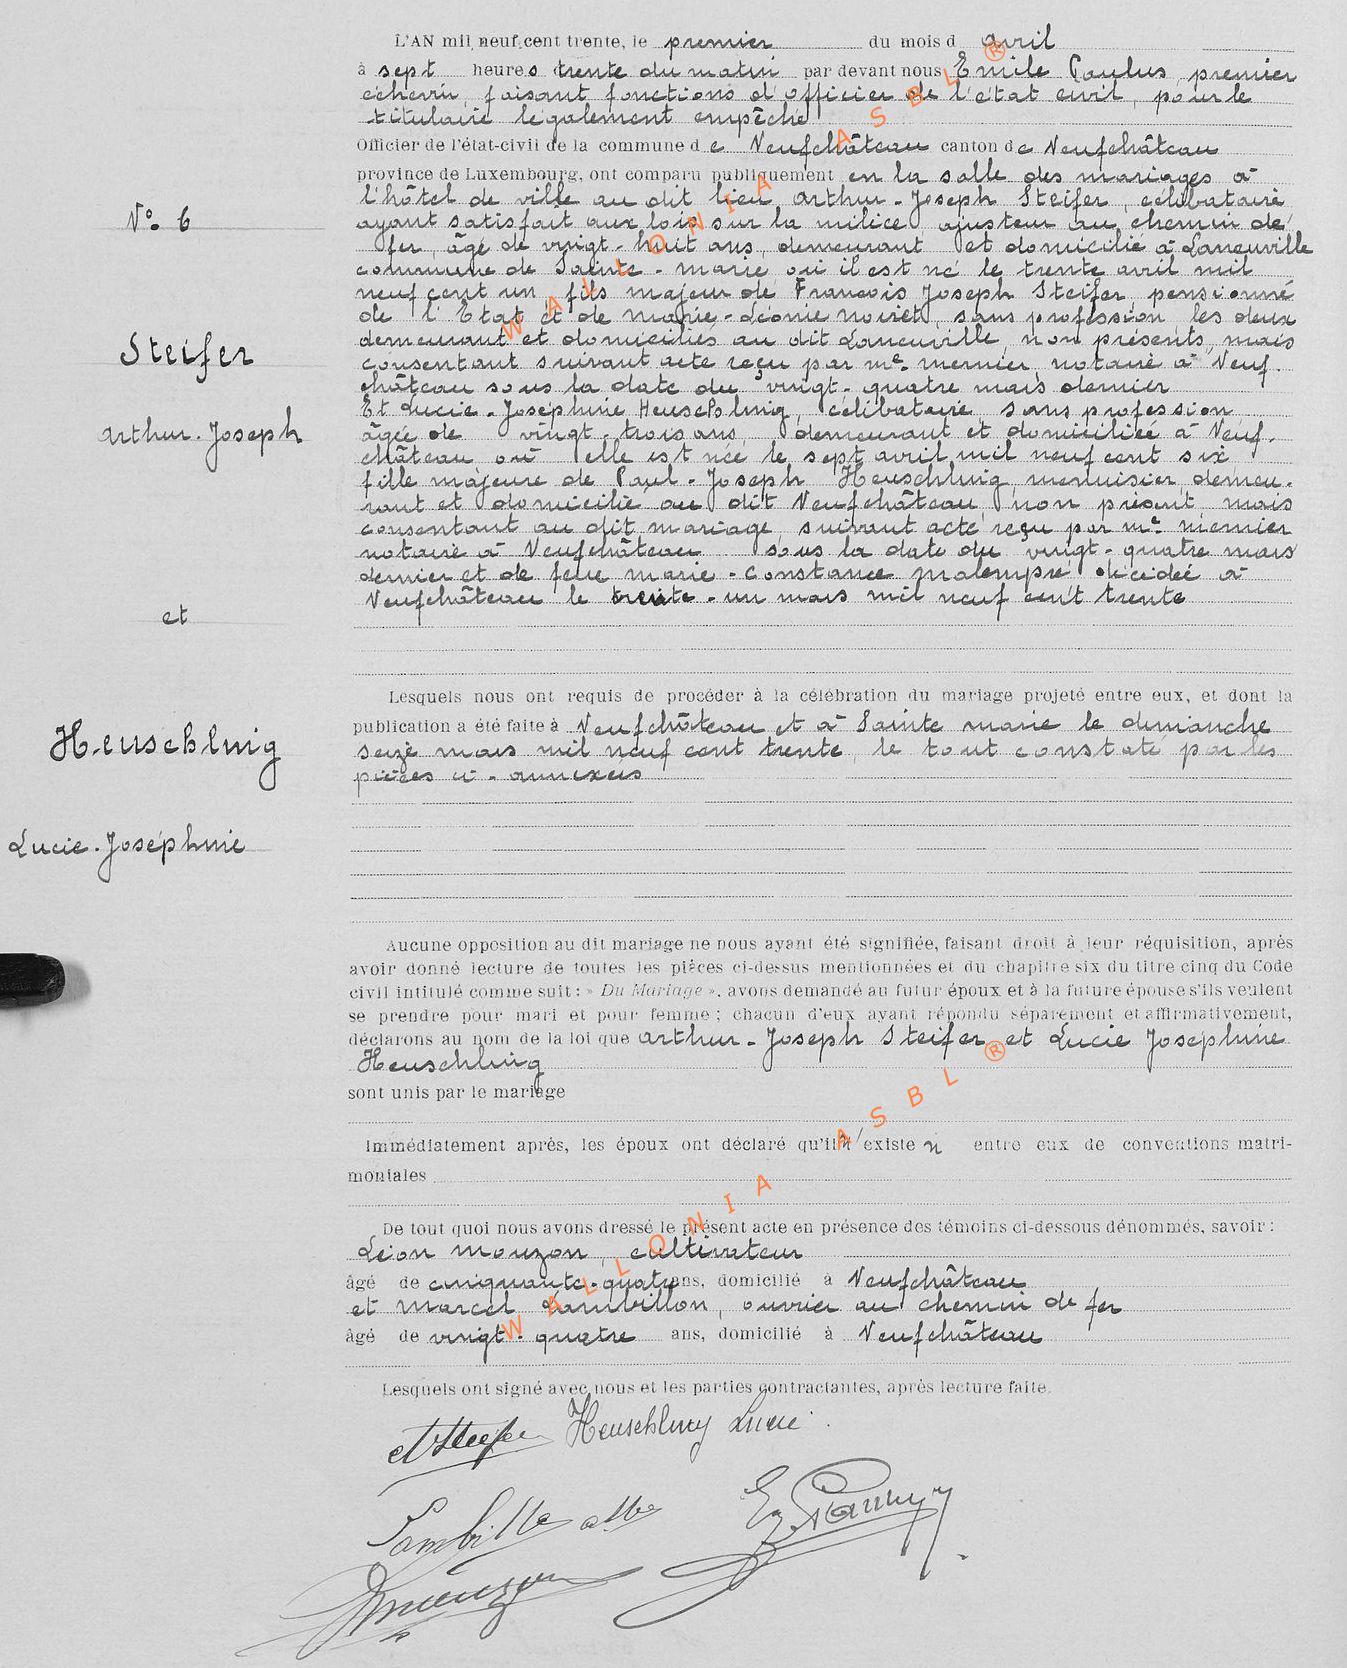 L'AN mil neuf cent trente, le premier du mois d avril
à sept heures trente du matin par devant nous Emile Paulus, premier
échevin, faisant fonctions d'officier de l'état civil, pour le
titulaire légalement empêché
Officier de l'état-civil de la commune de Neufchâteau canton de Neufchâteau
province de Luxembourg, ont comparu publiquement en la salle des mariages à
l'hôtel de ville au dit lieu Arthur-Joseph Steifer, célibataire
N° 6
ayant satisfait aux lois sur la milice ajusteur au chemin de
fer, âgé de vingt-huit ans, demeurant et domicilié à Laneuville
commune de Sainte-marie où il est né le trente avril mil
neuf cent un, fils majeur de François Joseph Steifer, pensionné
de l'Etat et de marie-Léonie noiret, sans profession, les deux
demeurant et domiciliés au dit Laneuville, non présents, mais
Steifer
consentant suivant acte reçu par me mernier, notaire à Neuf-
château sous la date du vingt-quatre mars dernier
Et Lucie-Joséphine Heuschling, célibataire sans profession
Arthur-Joseph
âgée de vingt-trois ans, demeurant et domiciliée à Neuf-
château où elle est née le sept avril mil neuf cent six
fille majeure de Paul-Joseph Heuschling, menuisier, demeu-
rant et domicilié au dit Neufchâteau, non présent mais
consentant au dit mariage, suivant acte reçu par me mernier
notaire à Neufchâteau sous la date du vingt-quatre mars
dernier et de feue marie-Constance malempré décédée à
Neufchâteau le trente-un mars mil neuf cent trente
et
Lesquels nous ont requis de procéder à la célébration du mariage projeté entre eux, et dont la
publication a été faite à Neufchâteau et à Sainte marie le dimanche
Heuschling
seize mars mil neuf cent trente, le tout constaté par les
pièces ci-annexées
Lucie-Joséphine
Aucune opposition au dit mariage ne nous ayant été signifiée, faisant droit à leur réquisition, après
avoir donné lecture de toutes les pièces ci-dessus mentionnées et du chapitre six du titre cinq du Code
civil intitulé comme suit : « Du Mariage », avons demandé au futur époux et à la future épouse s'ils veulent
se prendre pour mari et pour femme ; chacun d'eux ayant répondu séparément et affirmativement,
déclarons au nom de la loi que Arthur-Joseph Steifer et Lucie Joséphine
Heuschling
sont unis par le mariage
Immédiatement après, les époux ont déclaré qu'il n'existe entre eux de conventions matri-
moniales
De tout quoi nous avons dressé le présent acte en présence des témoins ci-dessous dénommés, savoir :
Léon Mouzon, cultivateur
âgé de cinquante-quatre ans, domicilié à Neufchâteau
et Marcel Lambillon, ouvrier au chemin de fer
âgé de vingt-quatre ans, domicilié à Neufchâteau
Lesquels ont signé avec nous et les parties contractantes, après lecture faite.
A Steifer Heuschling Lucie
WALLONIA ASBL ®
WALLONIA ASBL ®